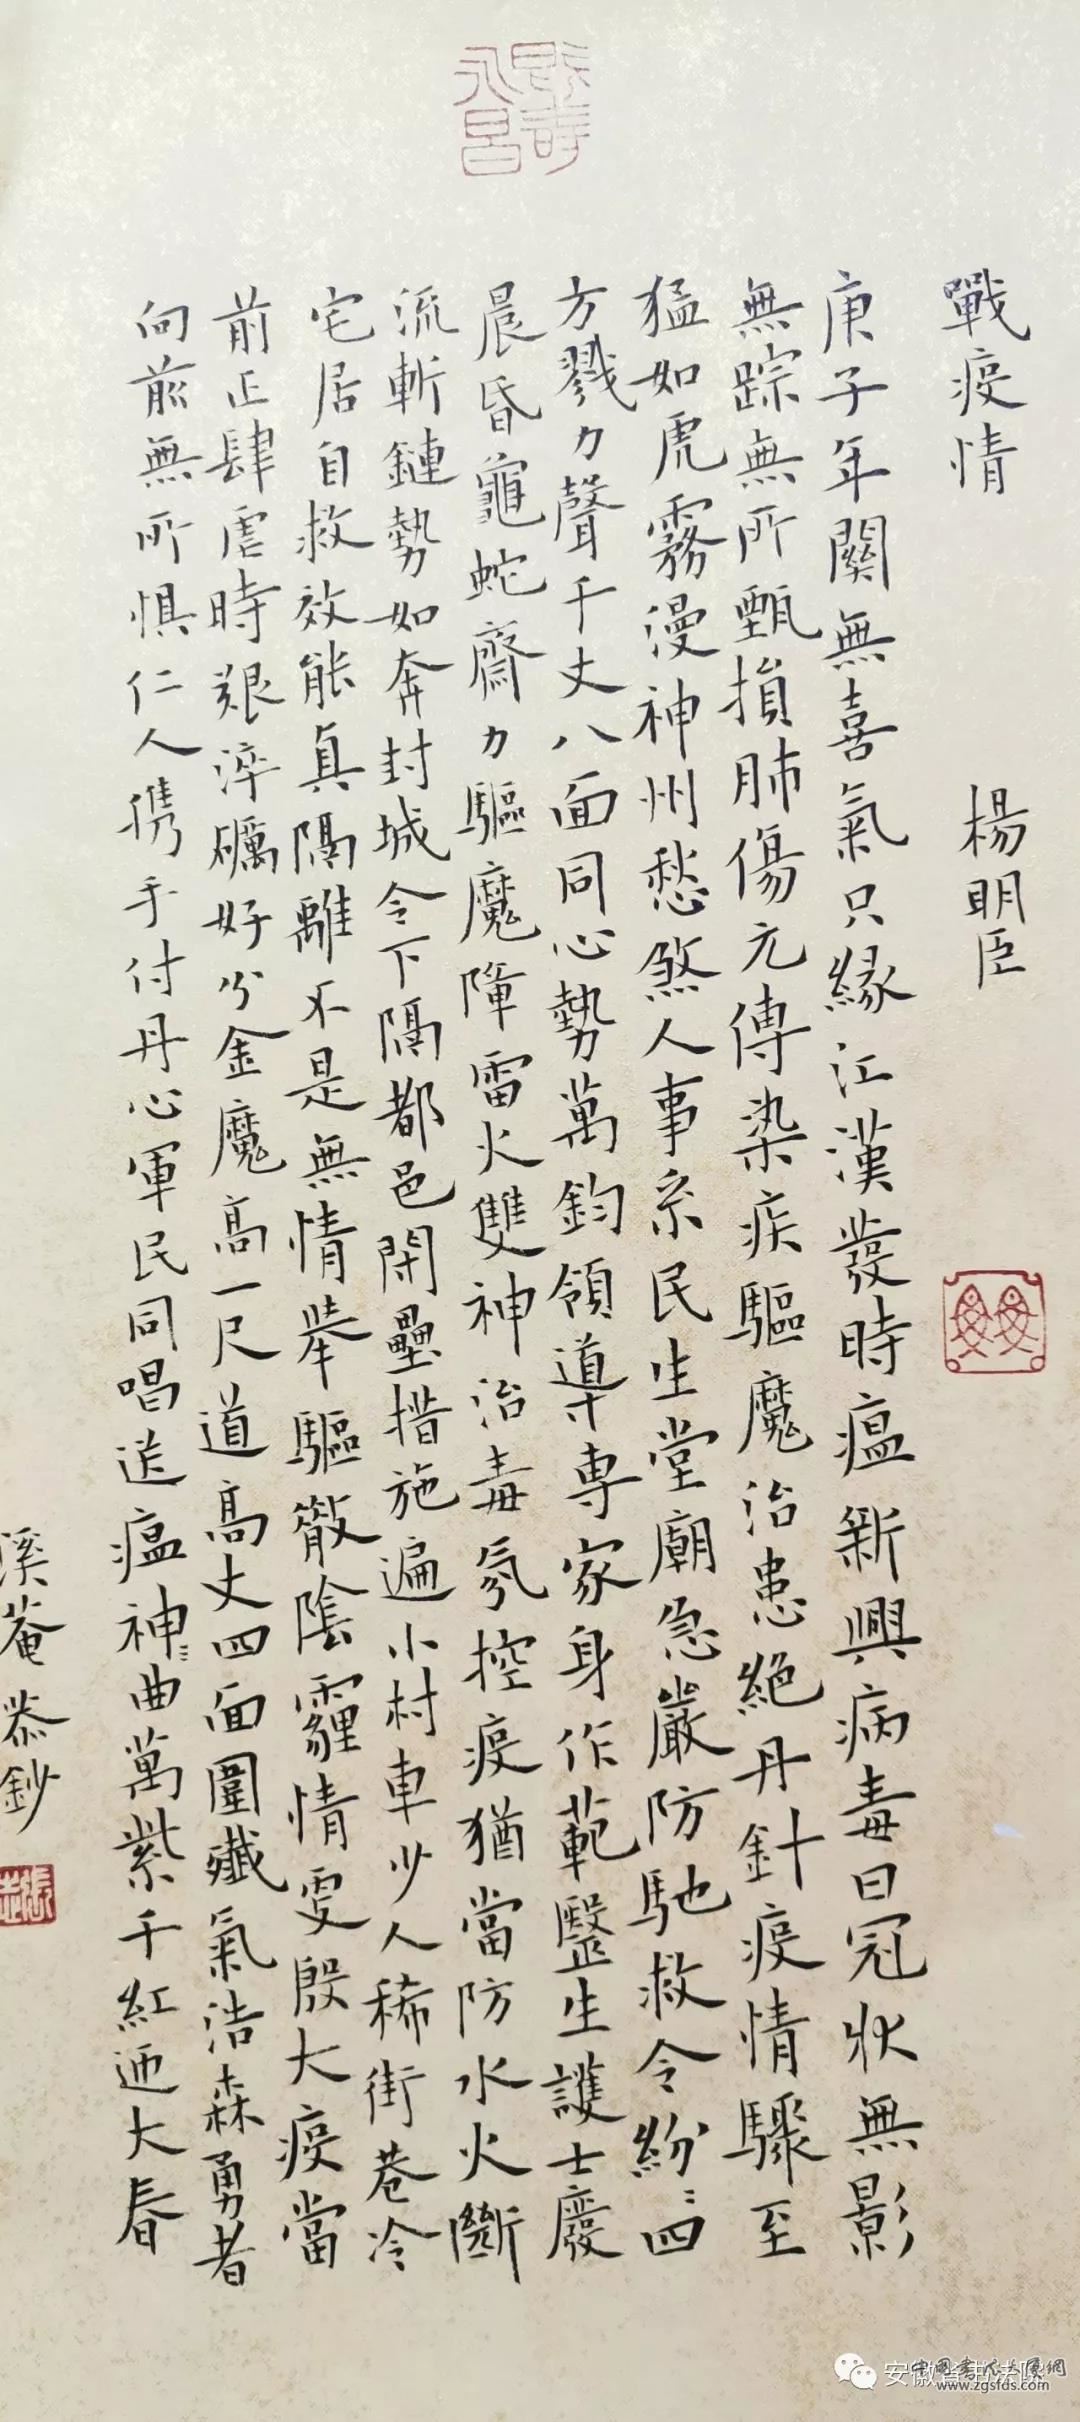 戰疫情 楊明臣
庚子年關無喜氣只緣江漢發時瘟新興病毒曰冠狀無影
無踪無所甄損肺傷元傳染疾驅魔治患絕丹針疫情驟至
猛如虎霧漫神州愁煞人事系民生堂廟急嚴防馳救令紛〻四
方戮力聲千丈八面同心勢萬鈞領導專家身作範醫生護士廢
晨昏龜蛇齋力驅魔障雷火雙神治毒氛控疫猶當防水火斷
流斬鏈勢如奔封城令下隔都邑閉壘措施遍小村車少人稀街巷冷
宅居自救效能真隔離不是無情舉驅散陰霾情更殷大疫當
前正肆虐時艱淬礪好分金魔高一尺道高丈四面圍殲氣浩森勇者
向前無所懼仁人携手付丹心軍民同唱送瘟神〻曲萬紫千紅迎大春
溪菴恭鈔
安徽省书法院
www.zgsfds.com